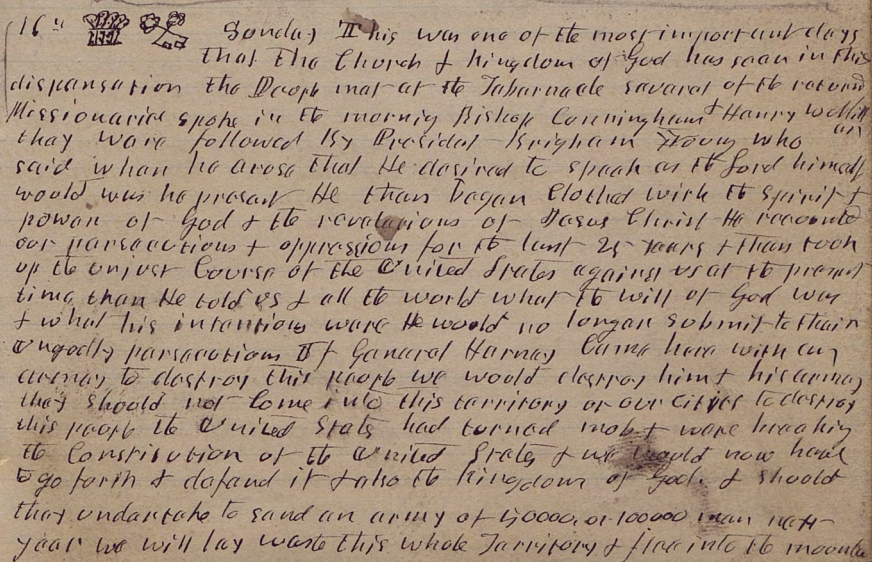 16th Sunday This was one of the most important days
that the Church & kingdom of God has seen in this
dispensation the People met at the Tabernacle several of the returned
Missionaries spoke in the morning Bishop Cunningham & Henry
they were followed By President Brigham Young who
said when he arose that He desired to speak as the Lord himself
would was he present He then began Clothed with the spirit &
power of God & the revelations of Jesus Christ He recounted
our persecutions & oppressions for the last 25 years & then took
up the unjust Course of the United States against us at the present
time then He told us & all the world what the will of God was
& what his intentions were He would no longer submit to their
ungodly persecutions If General Harney Came here with an
armey to destroy this people we would destroy him & his armey
they should not Come into this territory or our Cities to destroy
this people the United States had turned mob & were breaking
the Constitution of the United States & we would now have
to go forth & defend it & also the kingdom of God. & should
they undertake to send an army of 50000, or 100000 men next
year we will lay waste this whole Territory & flee into the